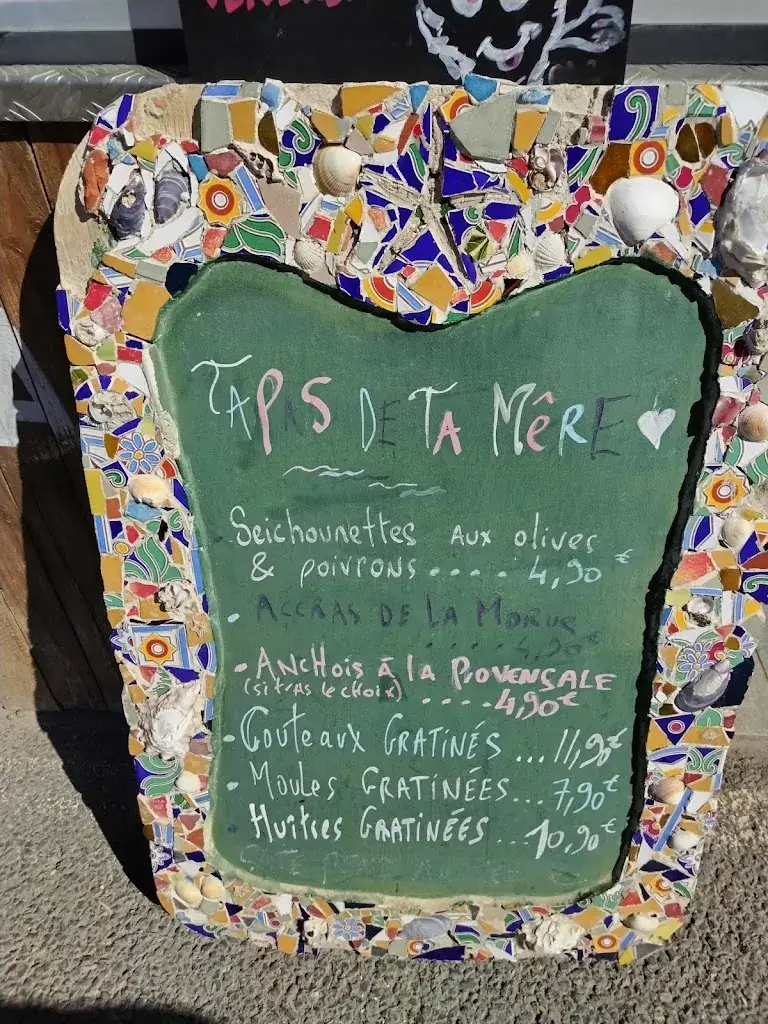 TAPAS DE TA MêRE
Seichounettes aux olives
& poivrons.... 4,90€
• ACCRAS DE LA MORUE
.... 4,90€
• ANCHois à la PROVENSALE
(si t'as le choix) .... 4,90€
• Couteaux GRATINÉS ...11,90€
• Moules GRATINÉES... 7,90€
• Huitres GRATINÉES ...10,90€